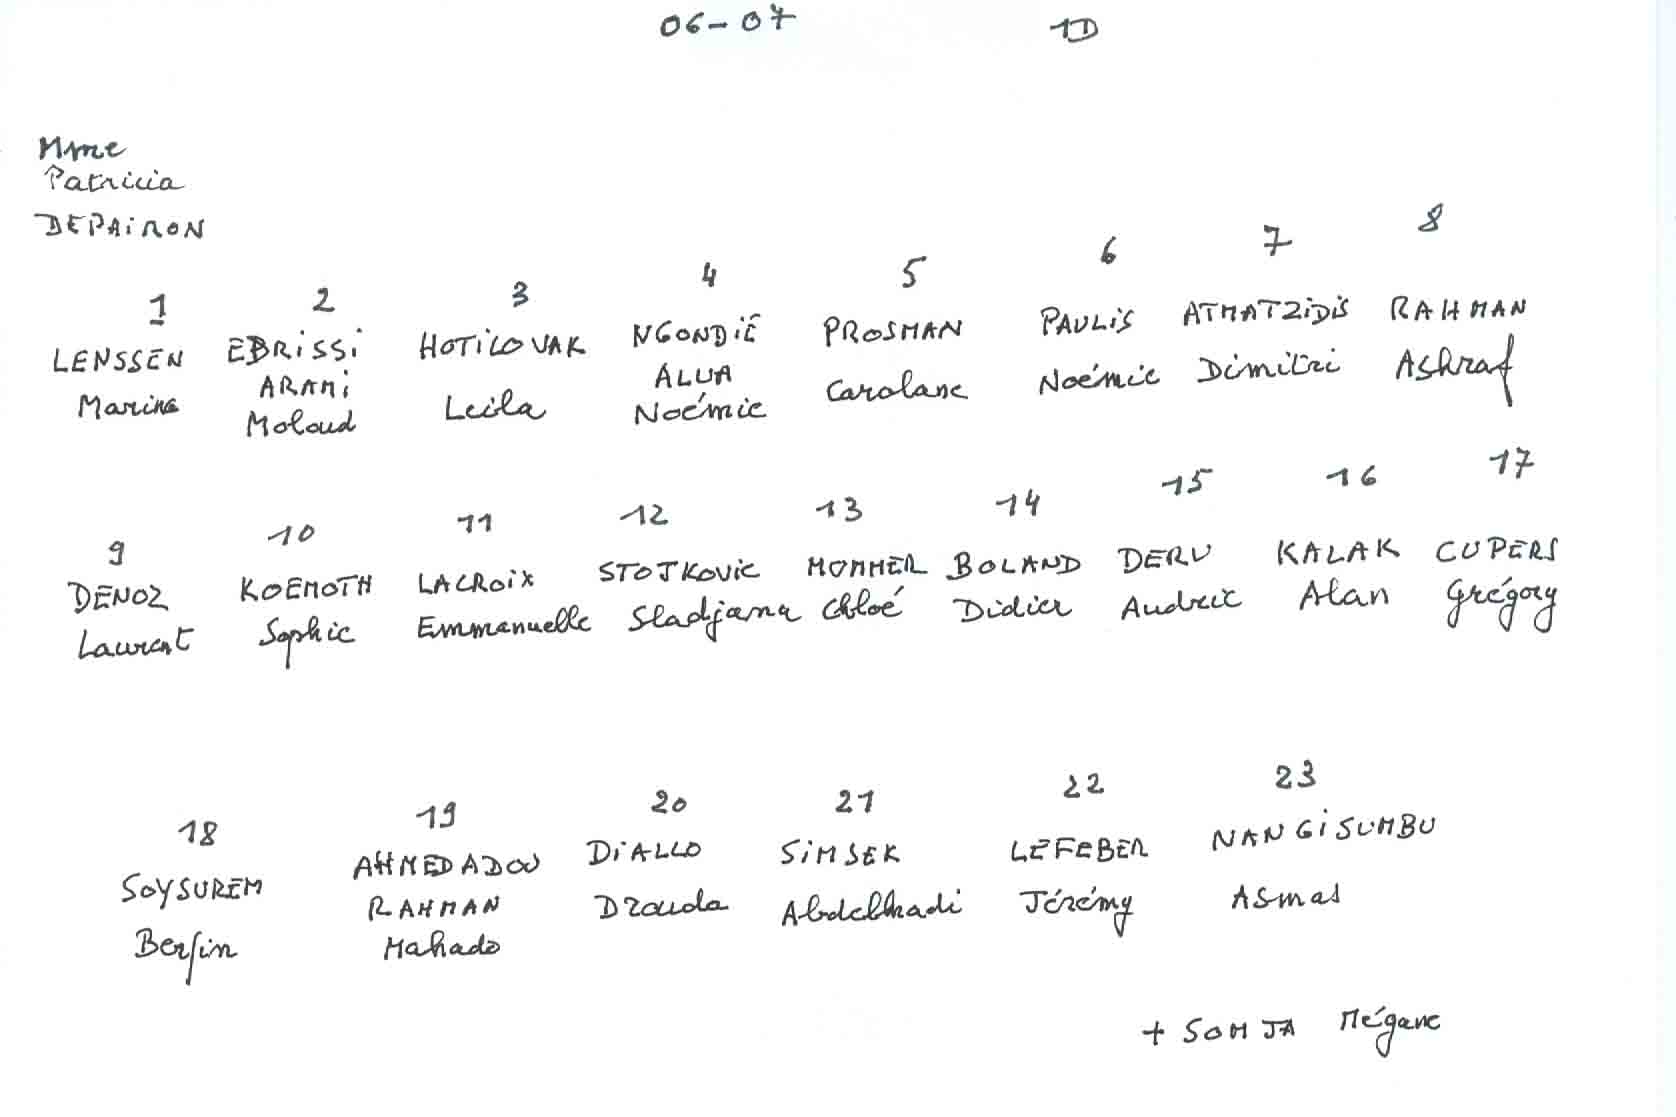 06-07 1D
Mme
Patricia
DEPAIRON
1 2 3 4 5 6 7 8
LENSSEN EBRISSI HOTILOVAK NGONDIÉ PROSMAN PAULIS ATMATZIDIS RAHMAN
Marine ARAMI Leila ALUA Carolane Noémie Dimitri Ashraf
Moloud Noémie
9 10 11 12 13 14 15 16 17
DENOZ KOEMOTH LACROIX STOJKOVIC MOMMER BOLAND DERU KALAK CUPERS
Laurent Sophie Emmanuelle Sladjana Chloé Didier Audric Alan Grégory
18 19 20 21 22 23
SOYSUREM AHMEDADOU DIALLO SIMSEK LEFEBER NANGISUMBU
Bersin RAHMAN Abdelhadi Jérémy ASmas
Mahado
+ SOMJA Mégane